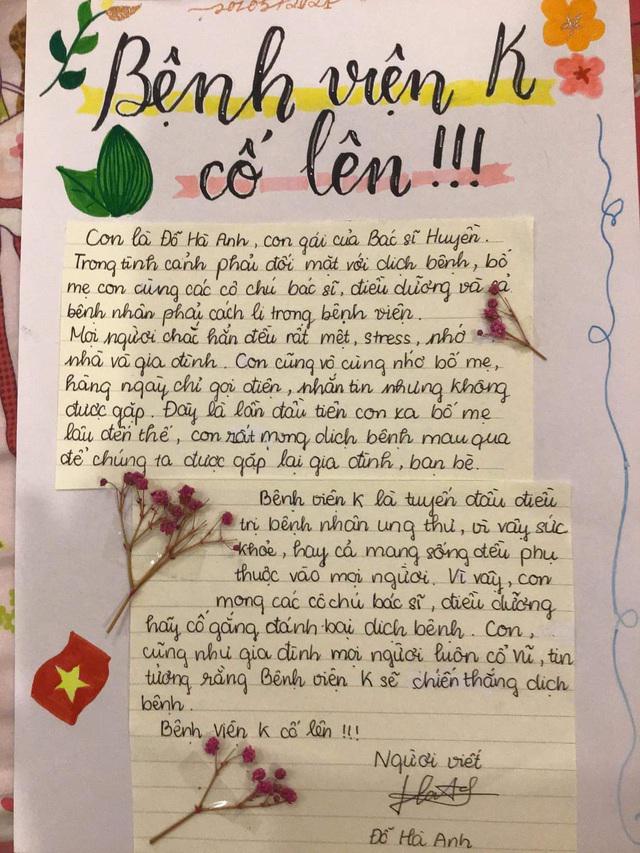 Bệnh viện K
cố lên!!!
Con là Đỗ Hà Anh, con gái của Bác sĩ Huyền.
Trong tình cảnh phải đối mặt với dịch bệnh, bố
mẹ con cùng các cô chú bác sĩ, điều dưỡng và cả
bệnh nhân phải cách li trong bệnh viện.
Mọi người chắc hẳn đều rất mệt, stress, nhớ
nhà và gia đình. Con cũng vô cùng nhớ bố mẹ,
hàng ngày chỉ gọi điện, nhắn tin nhưng không
được gặp. Đây là lần đầu tiên con xa bố mẹ
lâu đến thế, con rất mong dịch bệnh mau qua
để chúng ta được gặp lại gia đình, bạn bè.
Bệnh viện K là tuyến đầu điều
trị bệnh nhân ung thư, vì vậy sức
khoẻ, hay cả mạng sống đều phụ
thuộc vào mọi người. Vì vậy, con
mong các cô chú bác sĩ, điều dưỡng
hãy cố gắng đánh bại dịch bệnh. Con,
cũng như gia đình mọi người luôn cổ vũ, tin
tưởng rằng Bệnh viện K sẽ chiến thắng dịch
bệnh.
Bệnh viện K cố lên!!!
Người viết
Đỗ Hà Anh